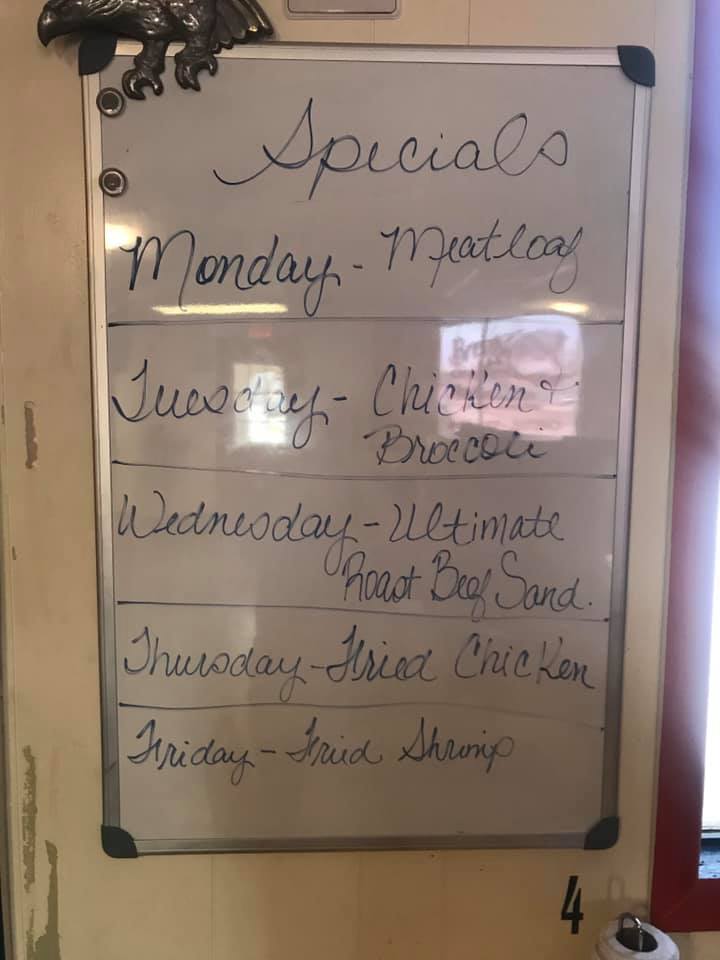 Specials
Monday - Meatloaf
Tuesday - Chicken &
Broccoli
Wednesday - Ultimate
Roast Beef Sand.
Thursday - Fried Chicken
Friday - Fried Shrimp
4